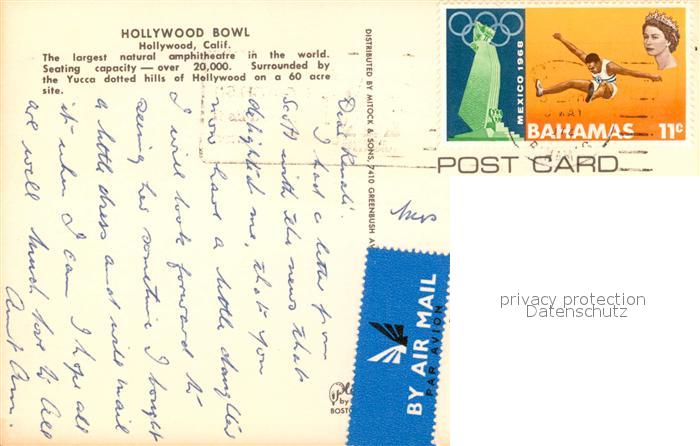 HOLLYWOOD BOWL
Hollywood, Calif.
The largest natural amphitheatre in the world.
Seating capacity — over 20,000. Surrounded by
the Yucca dotted hills of Hollywood on a 60 acre
site.
DISTRIBUTED BY MITOCK & SONS, 7410 GREENBUSH AV
MEXICO 1968
BAHAMAS 11c
POST CARD
Dear
I had a letter from
Scott with the news that
delighted me, that you
now have a little daughter
I will look forward to
seeing her sometime I bought
a little dress and will mail
it when I can I hope all
are well Much love to all
Aunt Ann.
Mrs
BY AIR MAIL
PAR AVION
by
BOSTO
privacy protection
Datenschutz